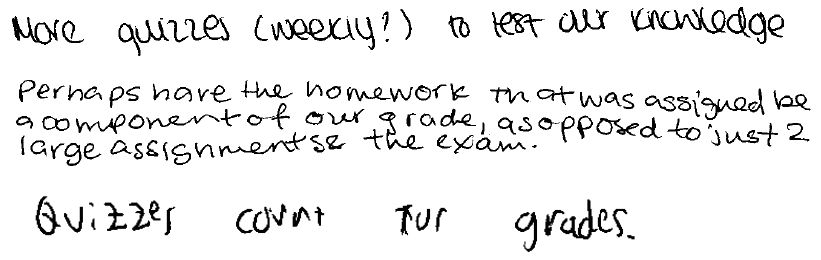 More quizzes (weekly?) to test our knowledge
Perhaps have the homework that was assigned be
a component of our grade, as opposed to just 2
large assignments & the exam.
Quizzes count for grades.